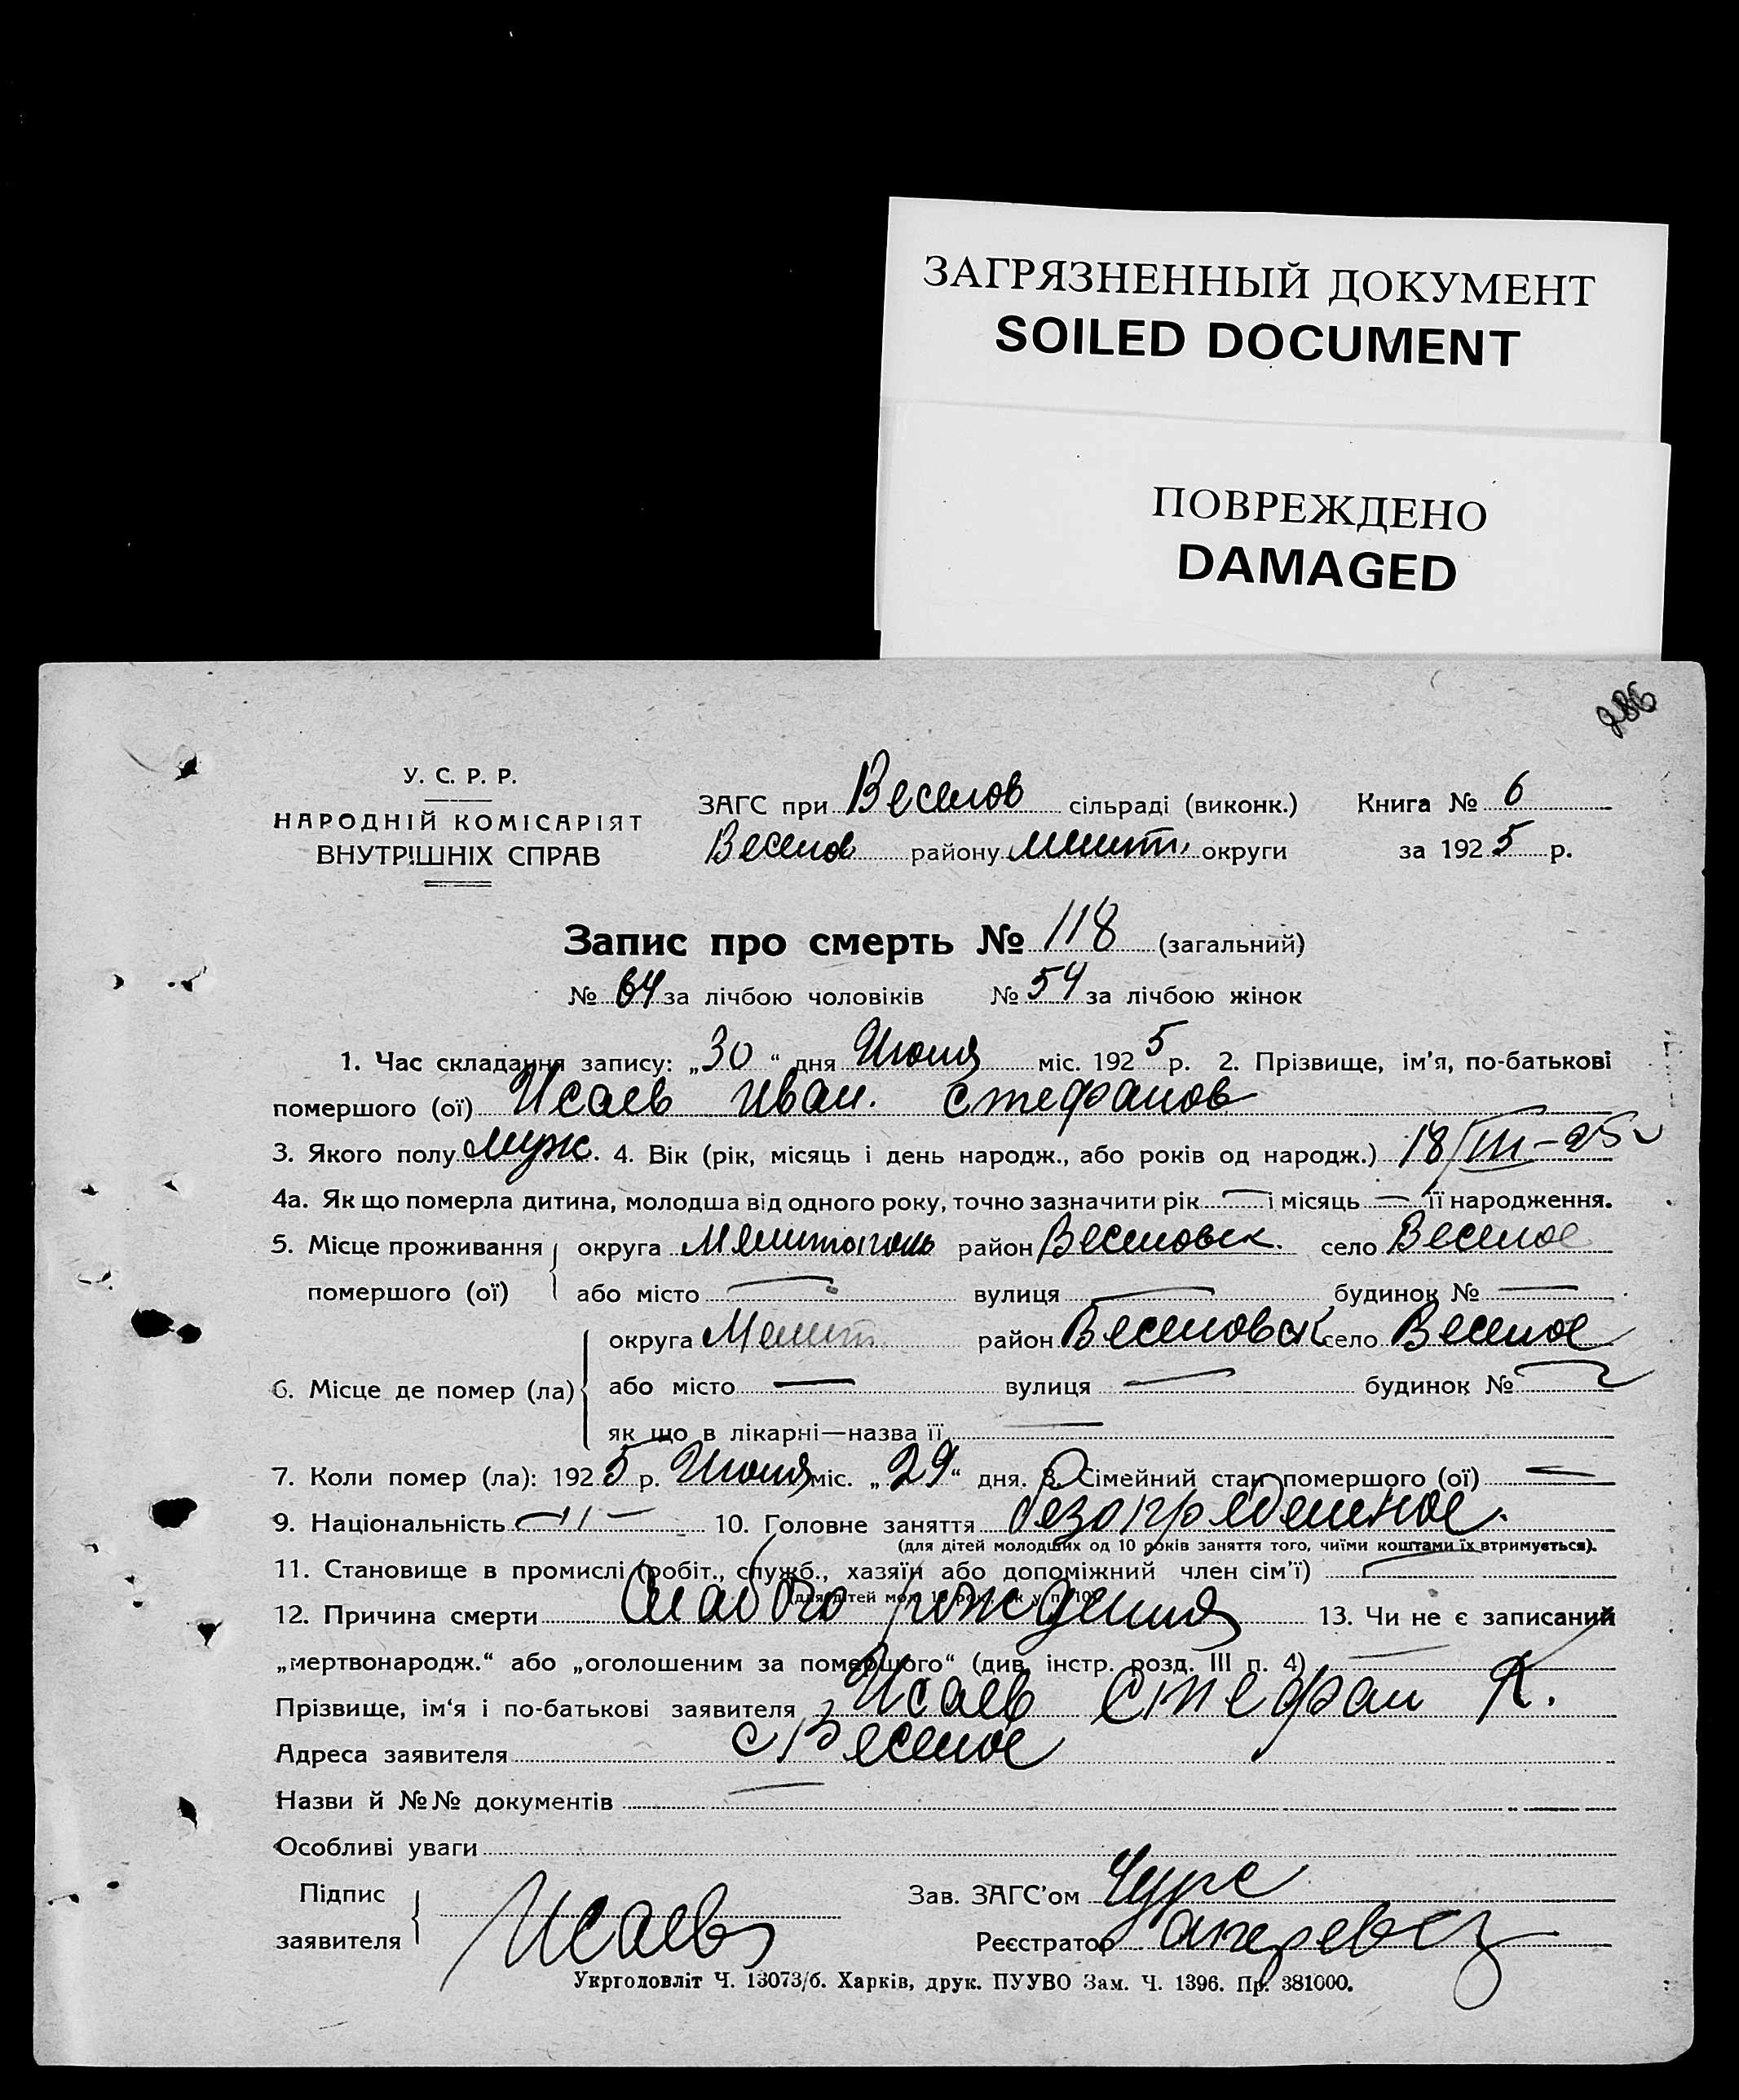 ЗАГРЯЗНЕННЫЙ ДОКУМЕНТ
SOILED DOCUMENT
ПОВРЕЖДЕНО
DAMAGED
286
У. С. Р. Р.
НАРОДНІЙ КОМІСАРІЯТ
ВНУТРІШНІХ СПРАВ
ЗАГС при Веселов сільраді (виконк.) Книга № 6
Весело району Мелит. округи за 1925 р.
Запис про смерть № 118 (загальний)
№ 64 за лічбою чоловіків № 54 за лічбою жінок
1. Час складання запису: „30“ дня Июня міс. 1925 р. 2. Прізвище, ім’я, по-батькові
помершого (ої) Исаев Иван. Стефанов
3. Якого полу муж. 4. Вік (рік, місяць і день народж., або років од народж.) 18/III–25
4а. Як що померла дитина, молодша від одного року, точно зазначити рік — і місяць — її народження.
5. Місце проживання помершого (ої) округа Мелитополь район Веселовск. село Веселое
або місто — вулиця — будинок № —
6. Місце де помер (ла) округа Мелит. район Веселовск село Веселое
або місто — вулиця — будинок №
як що в лікарні—назва її —
7. Коли помер (ла): 1925 р. Июня міс. „29“ дня. 8. Сімейний стан помершого (ої) —
9. Національність —11— 10. Головне заняття
(для дітей молодших од 10 років заняття того, чиїми коштами їх втримується).
11. Становище в промислі (робіт., служб., хазяїн або допоміжний член сім’ї) —
12. Причина смерти Слабого рождения 13. Чи не є записаний
„мертвонародж.“ або „оголошеним за помершого“ (див. інстр. розд. III п. 4) —
Прізвище, ім‘я і по-батькові заявителя Исаев Стефан
Адреса заявителя с Веселое
Назви й №№ документів —
Особливі уваги
Підпис заявителя Исаев
Зав. ЗАГС’ом
Реєстратор
Укрголовліт Ч. 13073/б. Харків, друк. ПУУВО Зам. Ч. 1396. Пр. 381000.